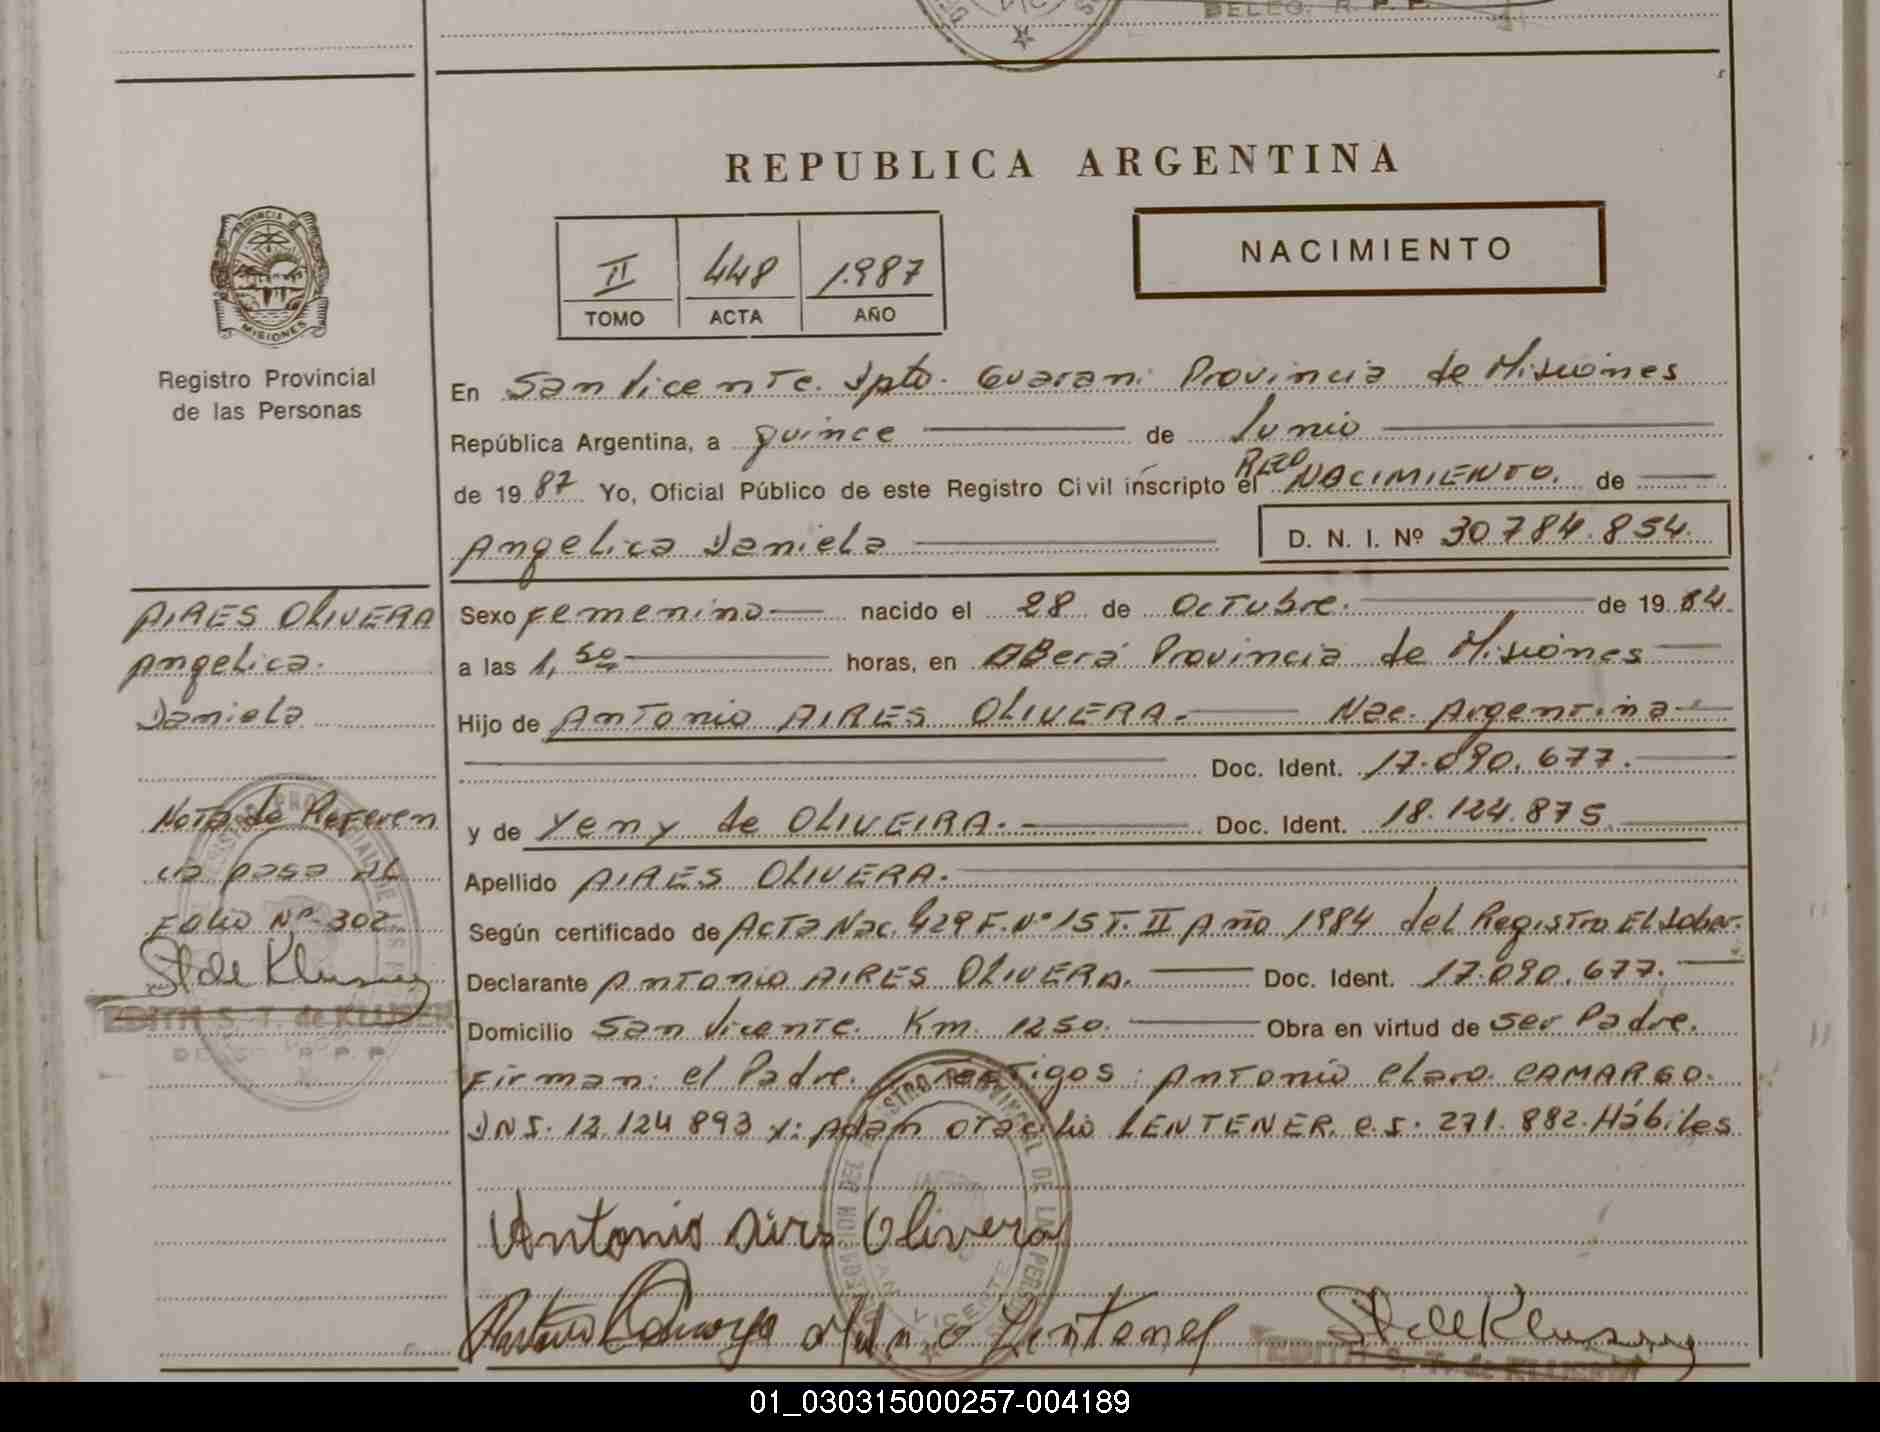 REPUBLICA ARGENTINA
NACIMIENTO
II 448 1.987
TOMO ACTA AÑO
PROVINCIA DE
MISIONES
Registro Provincial
de las Personas
En San Vicente. Dpto. Guarani Provincia de Misiones
República Argentina, a quince de Junio
de 1987 Yo, Oficial Público de este Registro Civil inscripto el Rec NACIMIENTO. de
Angelica Daniela D. N. I. Nº 30.784.854.
AIRES OLIVERA
Angelica.
Daniela
Sexo Femenino nacido el 28 de Octubre. de 1984.
a las 1,50 horas, en OBerá Provincia de Misiones
Hijo de Antonio AIRES OLIVERA. Nac. Argentina
Doc. Ident. 17.090.677.
y de Yeny de OLIVEIRA. Doc. Ident. 18.124.875.
Apellido AIRES OLIVERA.
Según certificado de Acta Nac. 429 F. Nº 15 T. II Año 1984 del Registro El Sober.
Declarante Antonio AIRES OLIVERA. Doc. Ident. 17.090.677.
Domicilio San Vicente. Km. 1250. Obra en virtud de ser Padre.
Firman: el Padre. Testigos: Antonio Claro CAMARGO.
DNI. 12.124.893 y: Adan Otacilio LENTENER. C.I. 271.882. Hábiles
Nota de Referen
cia pasa AL
Folio Nº 302
EDITH S. T. de KLUSENER
DELEG. R. P. P.
Antonio Aires Olivera
EDITH S. T. de KLUSENER
01_030315000257-004189